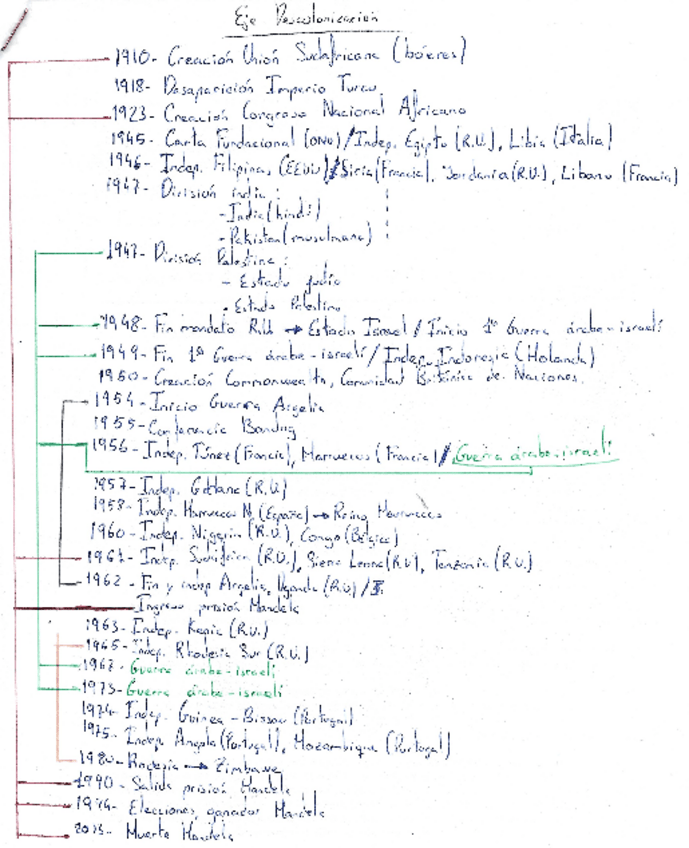 Eje Descolonización
1910- Creación Unión Sudafricana (bóeres)
1918- Desaparición Imperio Turco
1923- Creación Congreso Nacional Africano
1945- Carta Fundacional (ONU) / Indep. Egipto (R.U.), Libia (Italia)
1946- Indep. Filipinas (EEUU) / Siria (Francia), Jordania (R.U.), Líbano (Francia)
1947- División india:
- India (hindí)
- Pakistan (musulmana)
1947- División Palestina:
- Estado judío
- Estado Palestino
1948- Fin mandato R.U. → Estado Israel / Inicio 1ª Guerra árabe-israelí
1949- Fin 1ª Guerra árabe-israelí / Indep. Indonesia (Holanda)
1950- Creación Commonwealth, Comunidad Británica de Naciones.
1954- Inicio Guerra Argelia
1955- Conferencia Bandung
1956- Indep. Túnez (Francia), Marruecos (Francia) / Guerra árabe-israelí
1957- Indep. Ghana (R.U.)
1958- Indep. Marruecos N. (España) → Reino Marruecos
1960- Indep. Nigeria (R.U.), Congo (Bélgica)
1961- Indep. Sudáfrica (R.U.), Sierra Leona (R.U), Tanzania (R.U.)
1962- Fin y indep Argelia, Uganda (R.U) /
Ingreso prisión Mandela
1963- Indep. Kenia (R.U.)
1965- Indep. Rhodesia Sur (R.U.)
1967- Guerra árabe-israelí
1973- Guerra árabe-israelí
1974- Indep. Guinea-Bissau (Portugal)
1975- Indep Angola (Portugal), Mozambique (Portugal)
1980- Rodesia → Zimbawe
1990- Salida prisión Mandela
1994- Elecciones, ganador Mandela
2013- Muerte Mandela